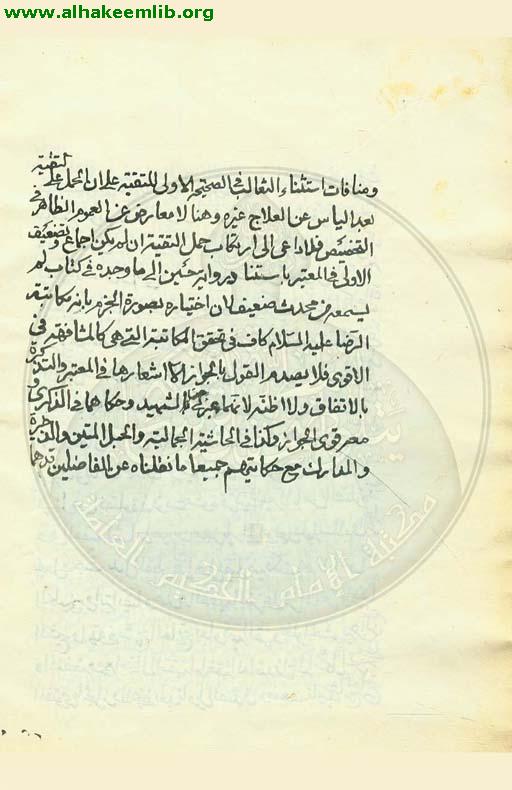 www.alhakeemlib.org
التقية
ومنافات استثناء الثالث في الصحيحة الاولى للتقية على ان الحمل على
بعد الياس عن العلاج غيره وهنا لا معارض عن العموم الظاهر في
التخصيص فلا داعى الى ارتكاب حمل التقية ان لم يكن اجماع وتضعيف
الاولى في المعتبر باستناد رواية حسين الى ما وجده في كتاب لم
يسمعه من محدث ضعيف لان اختياره بصورة الجزم بانه مكاتبة
الرضا عليه السلام كاف في تحقق المكاتبة التي هي كالمشافهة في
الاقوى فلا يصدم القول بالجواز الا اشعارها في المعتبر والتذكرة
بالاتفاق ولا اظنه لا سيما عبر الشهيد وحكاهما في الذكرى
معه قوى الجواز وكذا في الحاشية الجمالية والحبل المتين والذخيرة
والمدارك مع حكايتهم جميعا ما نقلناه عن الفاضلين
مكتبة الإمام الحكيم العامة